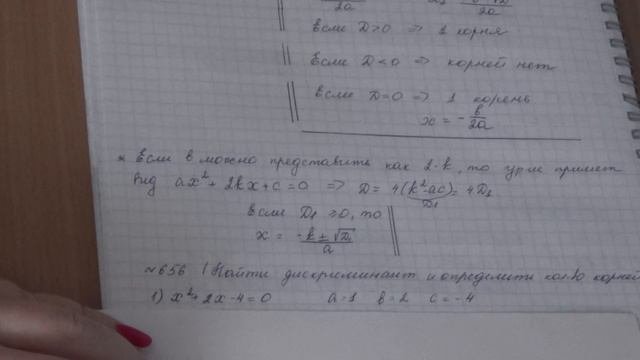 2a 2a
Если D>0 => 2 корня
Если D<0 => корней нет
Если D=0 => 1 корень
x = -b/2a
* Если b можно представить как 2·k, то ур-ие примет
вид ax²+2kx+c=0 => D= 4(k²-ac)=4D₁
D₁
Если D₁ ≥0, то
x = -k±√D₁/a
№656 Найти дискриминант и определить кол-во корней
1) x²+2x-4=0 a=1 b=2 c=-4